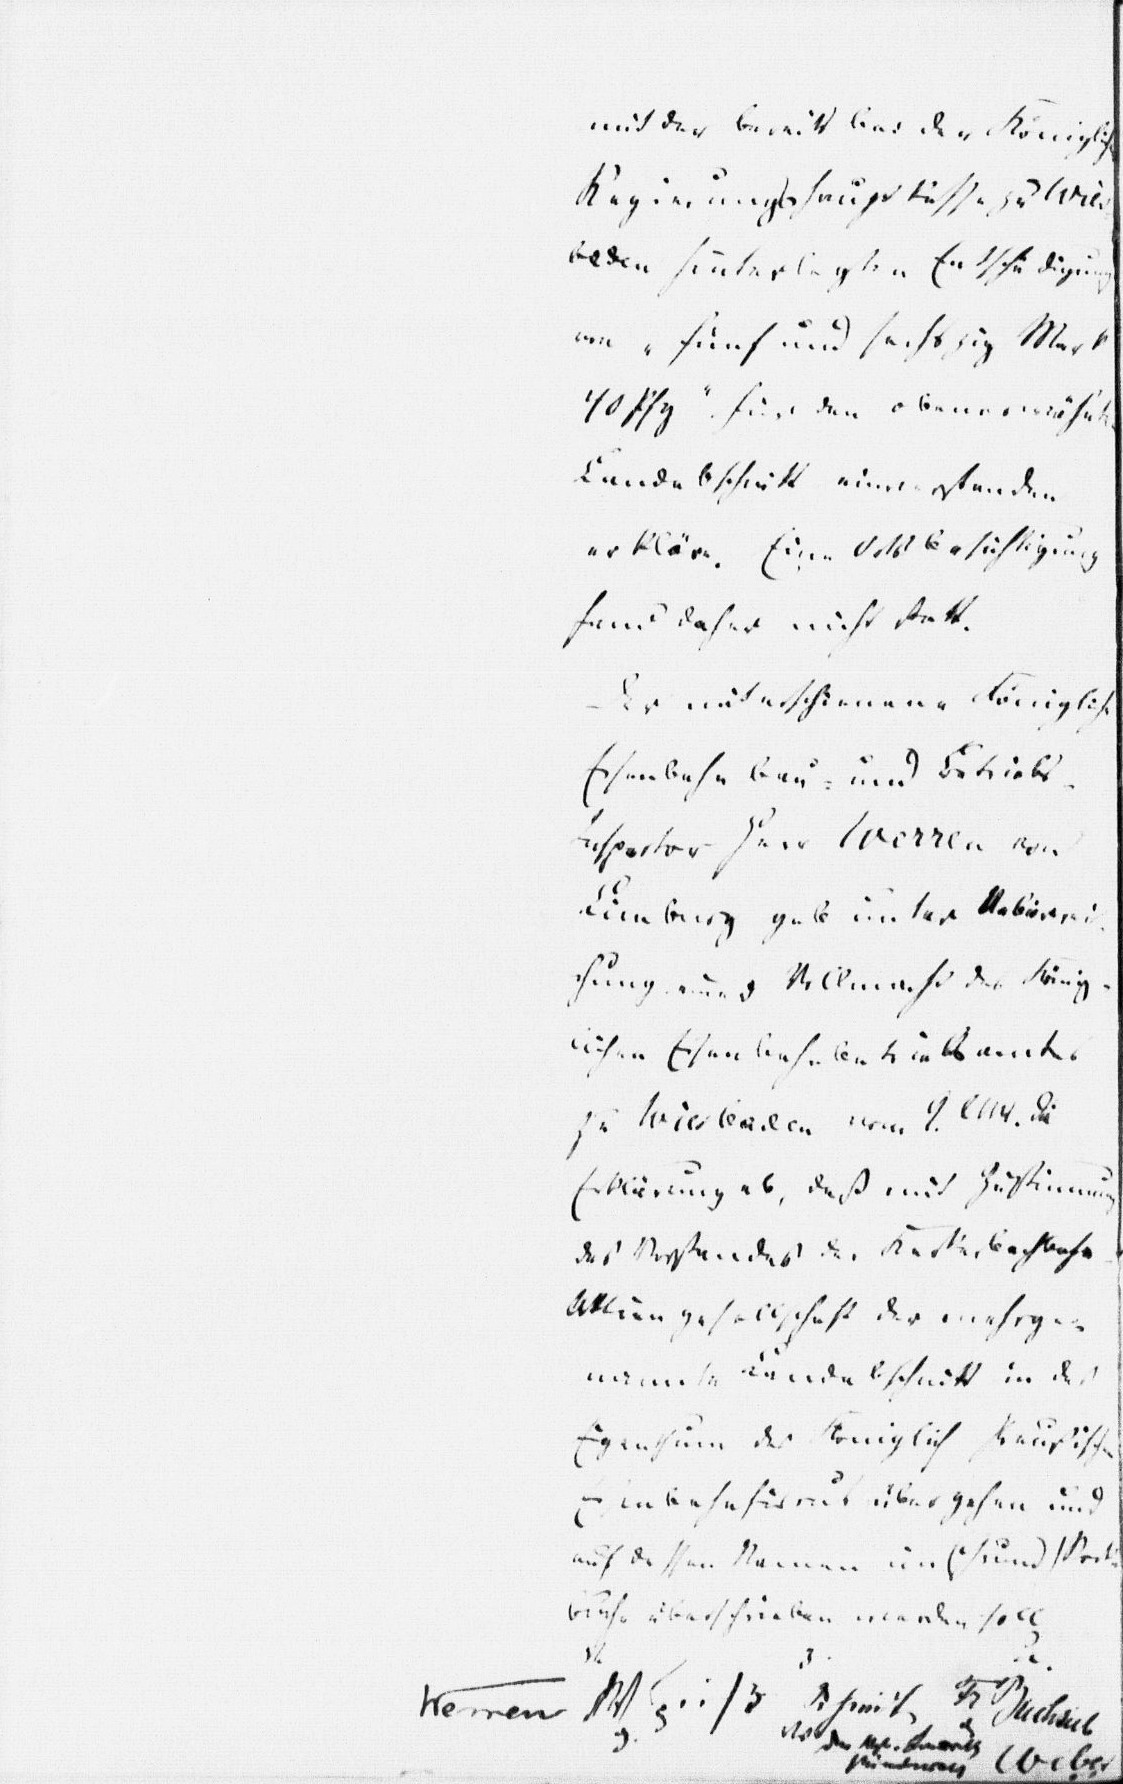 mit der bereits bei der Königlich
Regierungshauptkasse zu Wies-
baden hinterlegten Entschädigung
von „fünf und sechszig Mark
40 Pfg" für den obenerwähnten
Landabschnitt einverstanden
erkläre. Eine Ortsbesichtigung
fand daher nicht statt.
Der miterschienene Königliche
Eisenbahn bau- und Betriebs-
Inspector Herr Werren von
Limburg gab unter Ueberrei-
chung einer Vollmacht des König-
lichen Eisenbahnbetriebsamtes
zu Wiesbaden vom 9. lMt. die
Erklärung ab, daß mit Zustimmung
des Vorstandes der Kerkerbachbahn-
Aktiengesellschaft der mehrge-
nannte Landabschnitt in das
Eigenthum des Königlich Preußischen
Eisenbahnfiscus übergehen und
auf dessen Namen im Grund/Stock-
buche überschrieben werden soll
Werren Schmit Fr Buchsieb
Weber